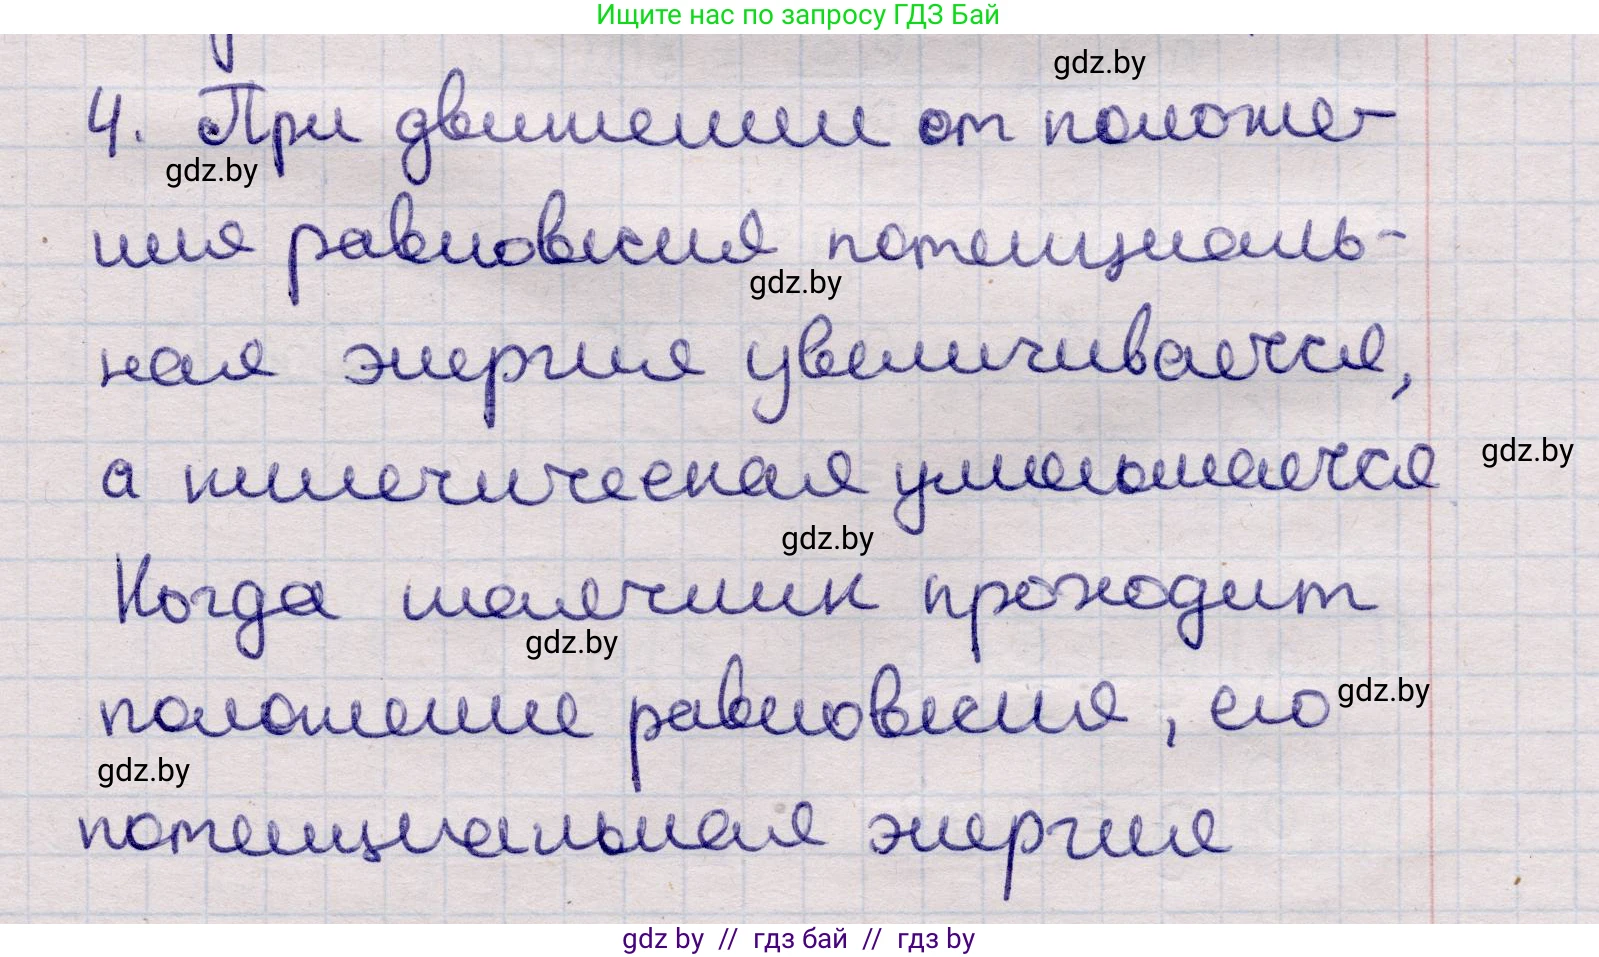 Ищите нас по запросу ГДЗ Бай
gdz.by
4. При движении от положе-
gdz.by
ния равновесия потенциаль-
gdz.by
ная энергия увеличивается,
а кинетическая уменьшается
gdz.by
gdz.by
Когда маятник проходит
gdz.by
положение равновесия, его
gdz.by
gdz.by
потенциальная энергия
gdz by // гдз бай // гдз by